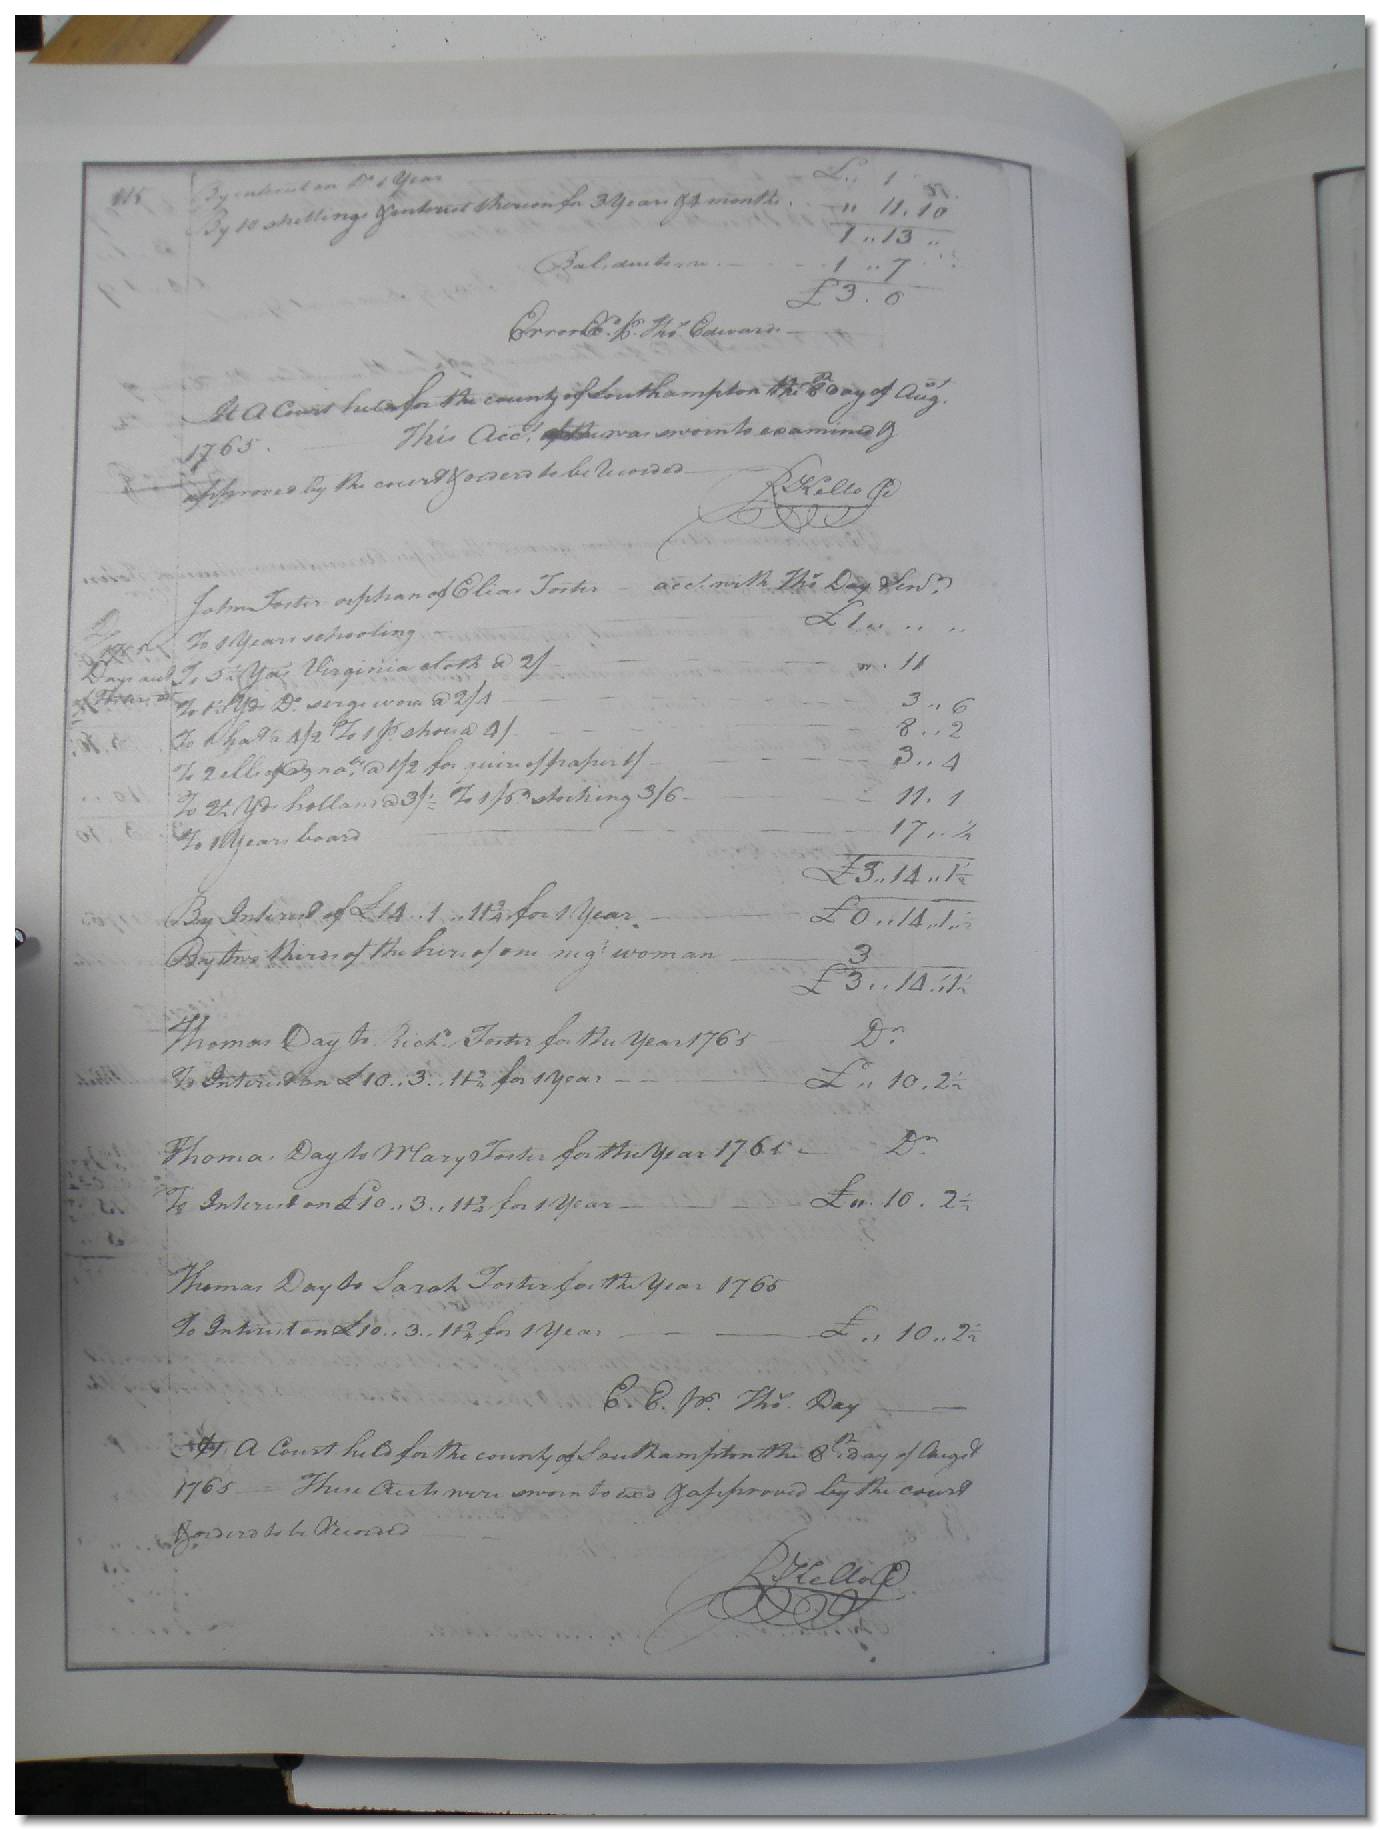 By interest on Do. 1 Year £ ,, 1
By 10 shillings & interest thereon for 3 Years & 4 months. ,, 11. 10
1 ,, 13 ,,
Bal. due 1 ,, 7
£ 3 . 0
Errors Ex. Pr. Thos. Edwards
At A Court held for the county of Southampton the 8th Day of Augt.
1765. This Acct. was sworn to examined &
approved by the court & orderd to be Recorded
R Kello Cl
John Foster orphan of Elias Foster acct. with Thos. Day Dr.
To 1 Years schooling £ 1 ,, ,, ,,
1765
Days acct
To 5½ Yds Virginia cloth @ 2/ ,, 11
To 1½ Yds Do. serge wove @ 2/4 3 ,, 6
To 1 hat @ 4/2 To 1 pr. shoes @ 4/ 8 ,, 2
To 2 ells of @ 1/2 for quire of paper 1/ 3 ,, 4
To 2½ Yds holland @ 3/½ To 1 pr. stocking 3/6 11. 1
To 1 Years board 17 ,, ½
£3 ,, 14 ,, 1½
By Interest of £14 .. 1 .. 11¾ for 1 Year £0 ,, 14 ,, 1½
By two thirds of the hire of one neg. woman 3
£3 ,, 14 ,, 1½
Thomas Day to Richd. Foster for the Year 1765 Dr.
To Interest on £10 .. 3 .. 11¾ for 1 Year £ ,, 10 . 2½
Thomas Day to Mary Foster for the Year 1765 Dr.
To Interest on £10 .. 3 .. 11¾ for 1 Year £ ,, 10 . 2½
Thomas Day to Sarah Foster for the Year 1765
To Interest on £10 .. 3 .. 11¾ for 1 Year £ ,, 10 ,, 2½
E. E. pr. Thos. Day
At A Court held for the county of Southampton the 8th day of Augst
1765 These Accts were sworn to exd & approved by the court
& orderd to be Recorded
R Kello Cl